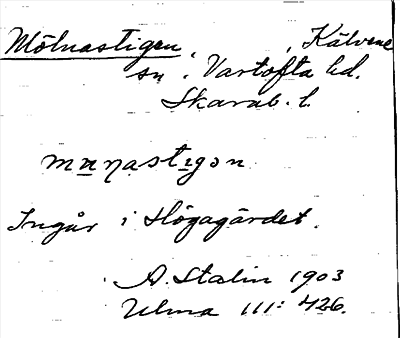 Mölnastigen, Kälvene
sn, Vartofta hd.
Skarab. l.
mꞟŋastıgɔn
Ingår i Högagärdet.
A. Stalin 1903
Ulma 111: 426.